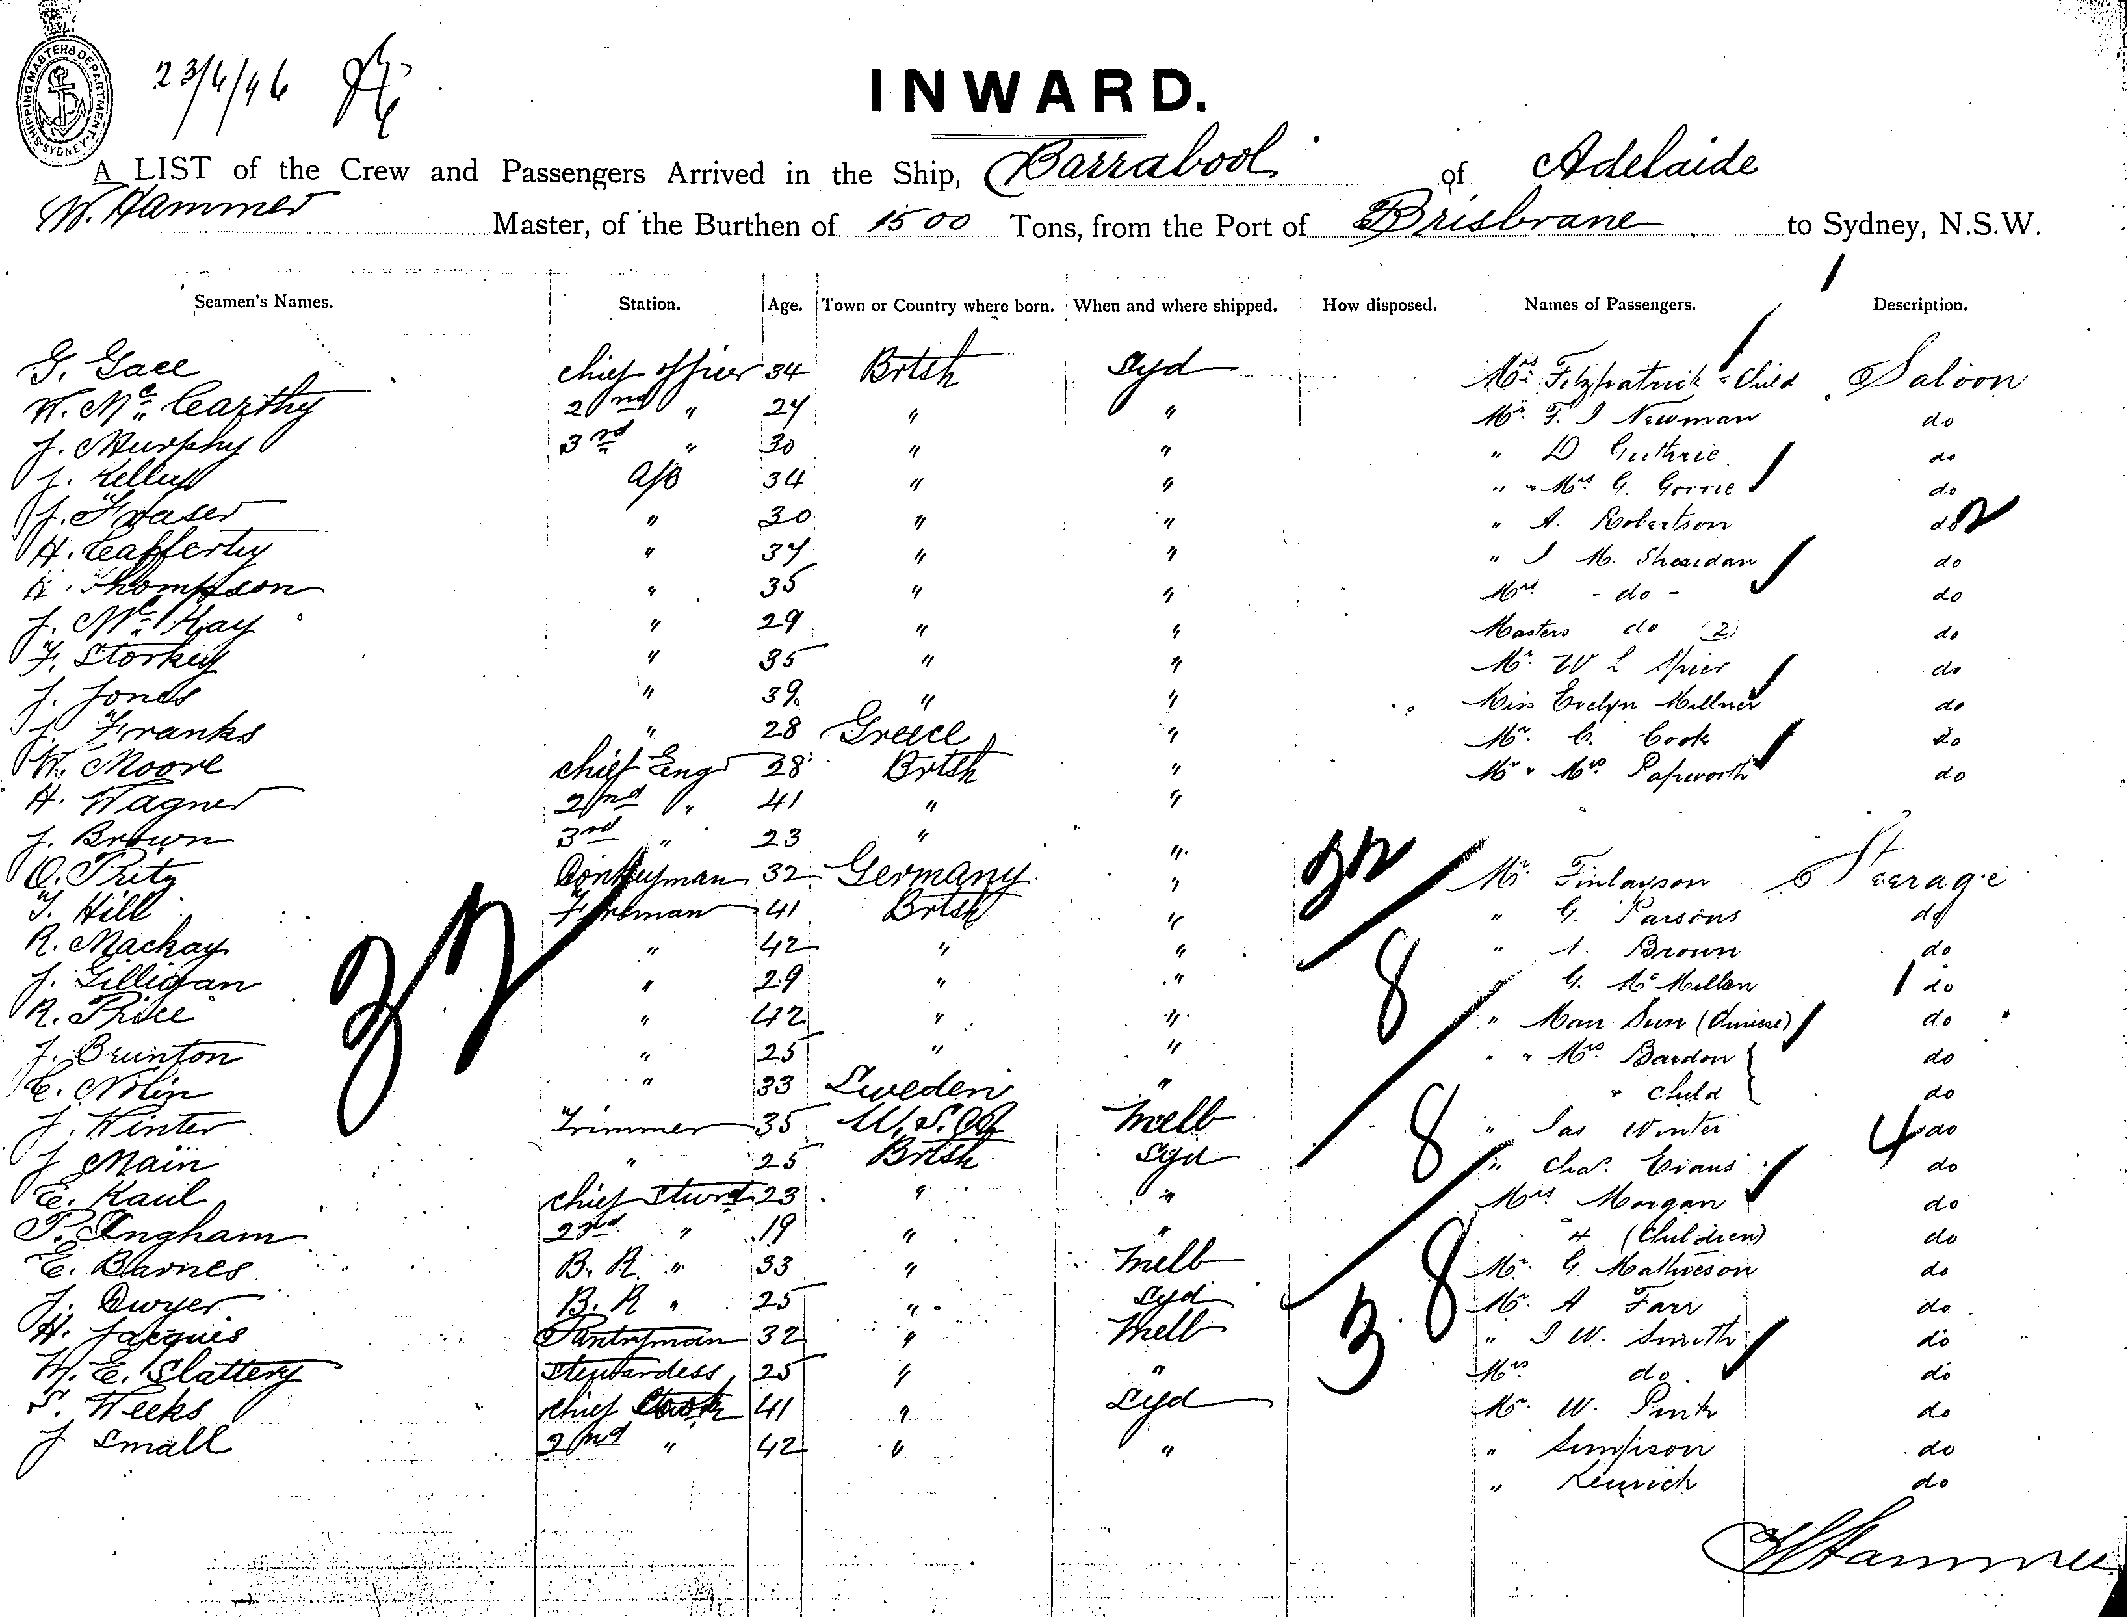 SHIPPING MASTERS DEPARTMENT
SYDNEY
23/6/96
INWARD.
A LIST of the Crew and Passengers Arrived in the Ship, Barrabool of Adelaide
W. Hammer Master, of the Burthen of 1500 Tons, from the Port of Brisbrane to Sydney, N.S.W.
Seamen's Names. Station. Age. Town or Country where born. When and where shipped. How disposed. Names of Passengers. Description.
G. Gall chief officer 34 Brtsh Syd Mrs. Fitzpatrick & Child Saloon
W. Mc. Carthy 2nd " 27 " " Mr. F. J Newman do
J. Murphy 3rd " 30 " " " D Guthrie do
J. Kelly a/b 34 " " " " Mrs G. Gorrie do
J. Fraser " 30 " " " A. Robertson do 2
H. Cafferty " 37 " " " J M. Sheridan do
Thompson " 35 " " Mrs - do - do
J. Mc. Kay " 29 " " Masters do (2) do
F. Storkey " 35 " " Mr. W L Spier do
J. Jones " 39 " " Miss Evelyn Millner do
J. Franks " 28 Greece " Mr. C. Cook do
W. Moore chief Engr 28 Brtsh " Mr & Mrs Papworth do
H. Wagner 2nd " 41 " "
J. Brown 3rd " 23 " "
O. Pritz Donkeyman 32 Germany " 32 Mr. Finlayson Steerage
T. Hill Fireman 41 Brtsh " " G. Parsons do
R. Mackay " 42 " " " Brown do
J. Gilligan " 29 " " " G. Mc Millan 1 do
R. Price " 42 " " 8 " Man Sun (Chinese) do
J. Brunton " 25 " " " " Mrs. Bardon do
C. Nolin " 33 Sweden " " child do
J. Winter Trimmer 35 U.S.A Melb 8 " Jas Winter 4 do
J Main " 25 Brtsh Syd " Chas. Evans do
E. Kaul chief Stwrd 23 " " Mrs Morgan do
P. Ingham 2nd " 19 " " 4 (Children) do
E. Barnes B. R. " 33 " Melb 8 Mr. G. Mathieson do
J. Dwyer B. R " 25 " Syd Mr. A Farr do
H. Jacques Pantryman 32 " Melb 3 " J W. Smith do
M. E. Slattery Stewardess 25 " " Mrs do do
S. Weeks chief Cook 41 " Syd Mr. W. Pink do
J Small 2nd " 42 " " " Simpson do
" Kenrick do
32
W Hammer